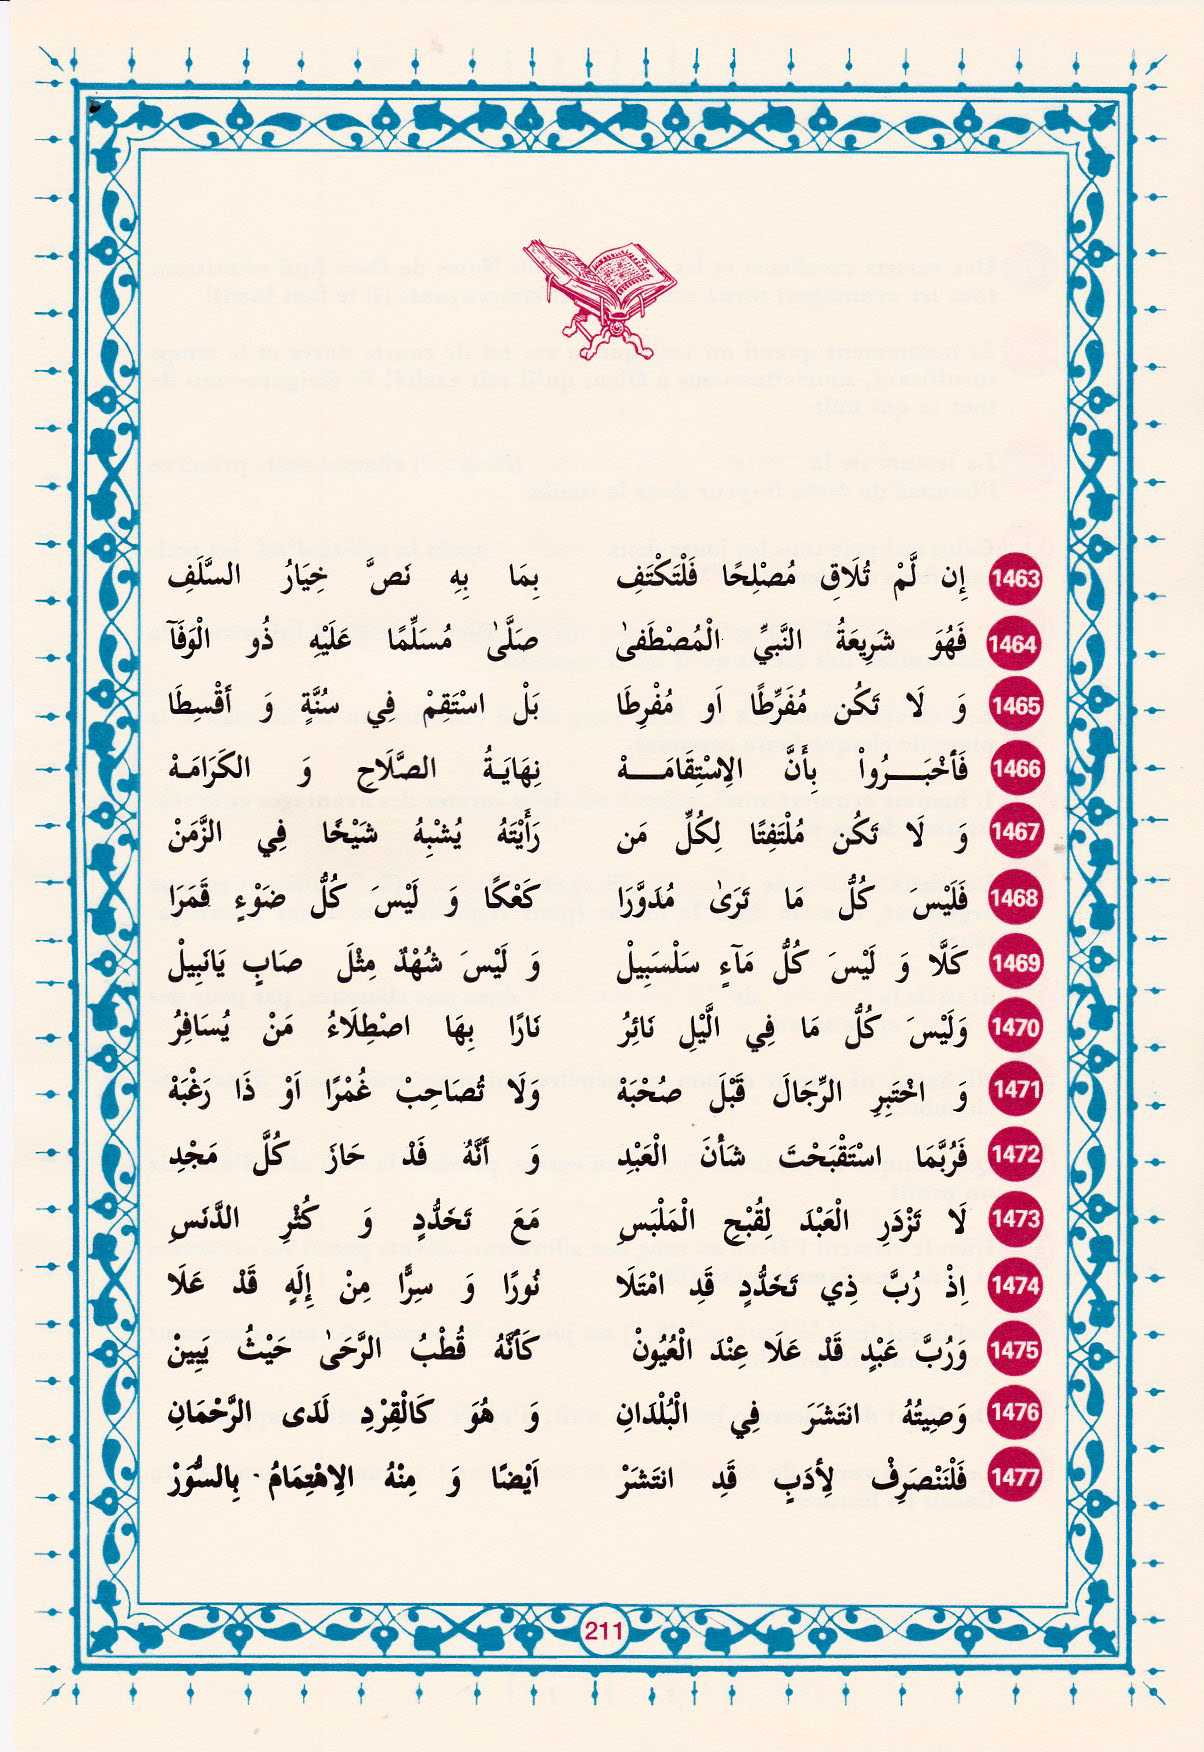 1463 إِن لَّمْ تُلَاقِ مُصْلِحًا فَلْتَكْتَفِ بِمَا بِهِ نَصَّ خِيَارُ السَّلَفِ
1464 فَهُوَ شَرِيعَةُ النَّبِيِّ الْمُصْطَفىٰ صَلَّىٰ مُسَلِّمًا عَلَيْهِ ذُو الْوَفَآ
1465 وَ لَا تَكُن مُفَرِّطًا اَو مُفْرِطَا بَلْ اسْتَقِمْ فِي سُنَّةٍ وَ أَقْسِطَا
1466 فَأَخْبَـرُواْ بِأَنَّ الاِسْتِقَامَـهْ نِهَايَةُ الصَّلَاحِ وَ الكَرَامَهْ
1467 وَ لَا تَكُن مُلْتَفِتًا لِكُلِّ مَن رَأَيْتَهُ يُشْبِهُ شَيْخًا فِي الزَّمَنْ
1468 فَلَيْسَ كُلُّ مَا تَرَىٰ مُدَوَّرَا كَعْكًا وَ لَيْسَ كُلُّ ضَوْءٍ قَمَرَا
1469 كَلَّا وَ لَيْسَ كُلُّ مَآءٍ سَلْسَبِيلْ وَ لَيْسَ شُهْدٌ مِثْلَ صَابٍ يَانَبِيلْ
1470 وَلَيْسَ كُلُّ مَا فِي الَّيْلِ نَائِرُ نَارًا بِهَا اصْطِلَاءُ مَنْ يُسَافِرُ
1471 وَ اخْتَبِرِ الرِّجَالَ قَبْلَ صُحْبَهْ وَلَا تُصَاحِبْ غُمْرًا اَوْ ذَا رَغْبَهْ
1472 فَرُبَّمَا اسْتَقْبَحْتَ شَأْنَ الْعَبْدِ وَ أَنَّهُ قَدْ حَازَ كُلَّ مَجْدِ
1473 لَا تَزْدَرِ الْعَبْدَ لِقُبْحِ الْمَلْبَسِ مَعَ تَخَدُّدٍ وَ كُثْرِ الدَّنَسِ
1474 اِذْ رُبَّ ذِي تَخَدُّدٍ قَدِ امْتَلَا نُورًا وَ سِرًّا مِنْ إِلَهٍ قَدْ عَلَا
1475 وَرُبَّ عَبْدٍ قَدْ عَلَا عِنْدَ الْعُيُونْ كَأَنَّهُ قُطْبُ الرَّحىٰ حَيْثُ يَبِينْ
1476 وَصِيتُهُ انتَشَرَ فِي الْبُلْدَانِ وَ هُوَ كَالْقِرْدِ لَدَى الرَّحْمَانِ
1477 فَلْنَنْصَرِفْ لِأَدَبٍ قَدِ انتَشَرْ اَيْضًا وَ مِنْهُ الاِهْتِمَامُ بِالسُّوَرْ
211